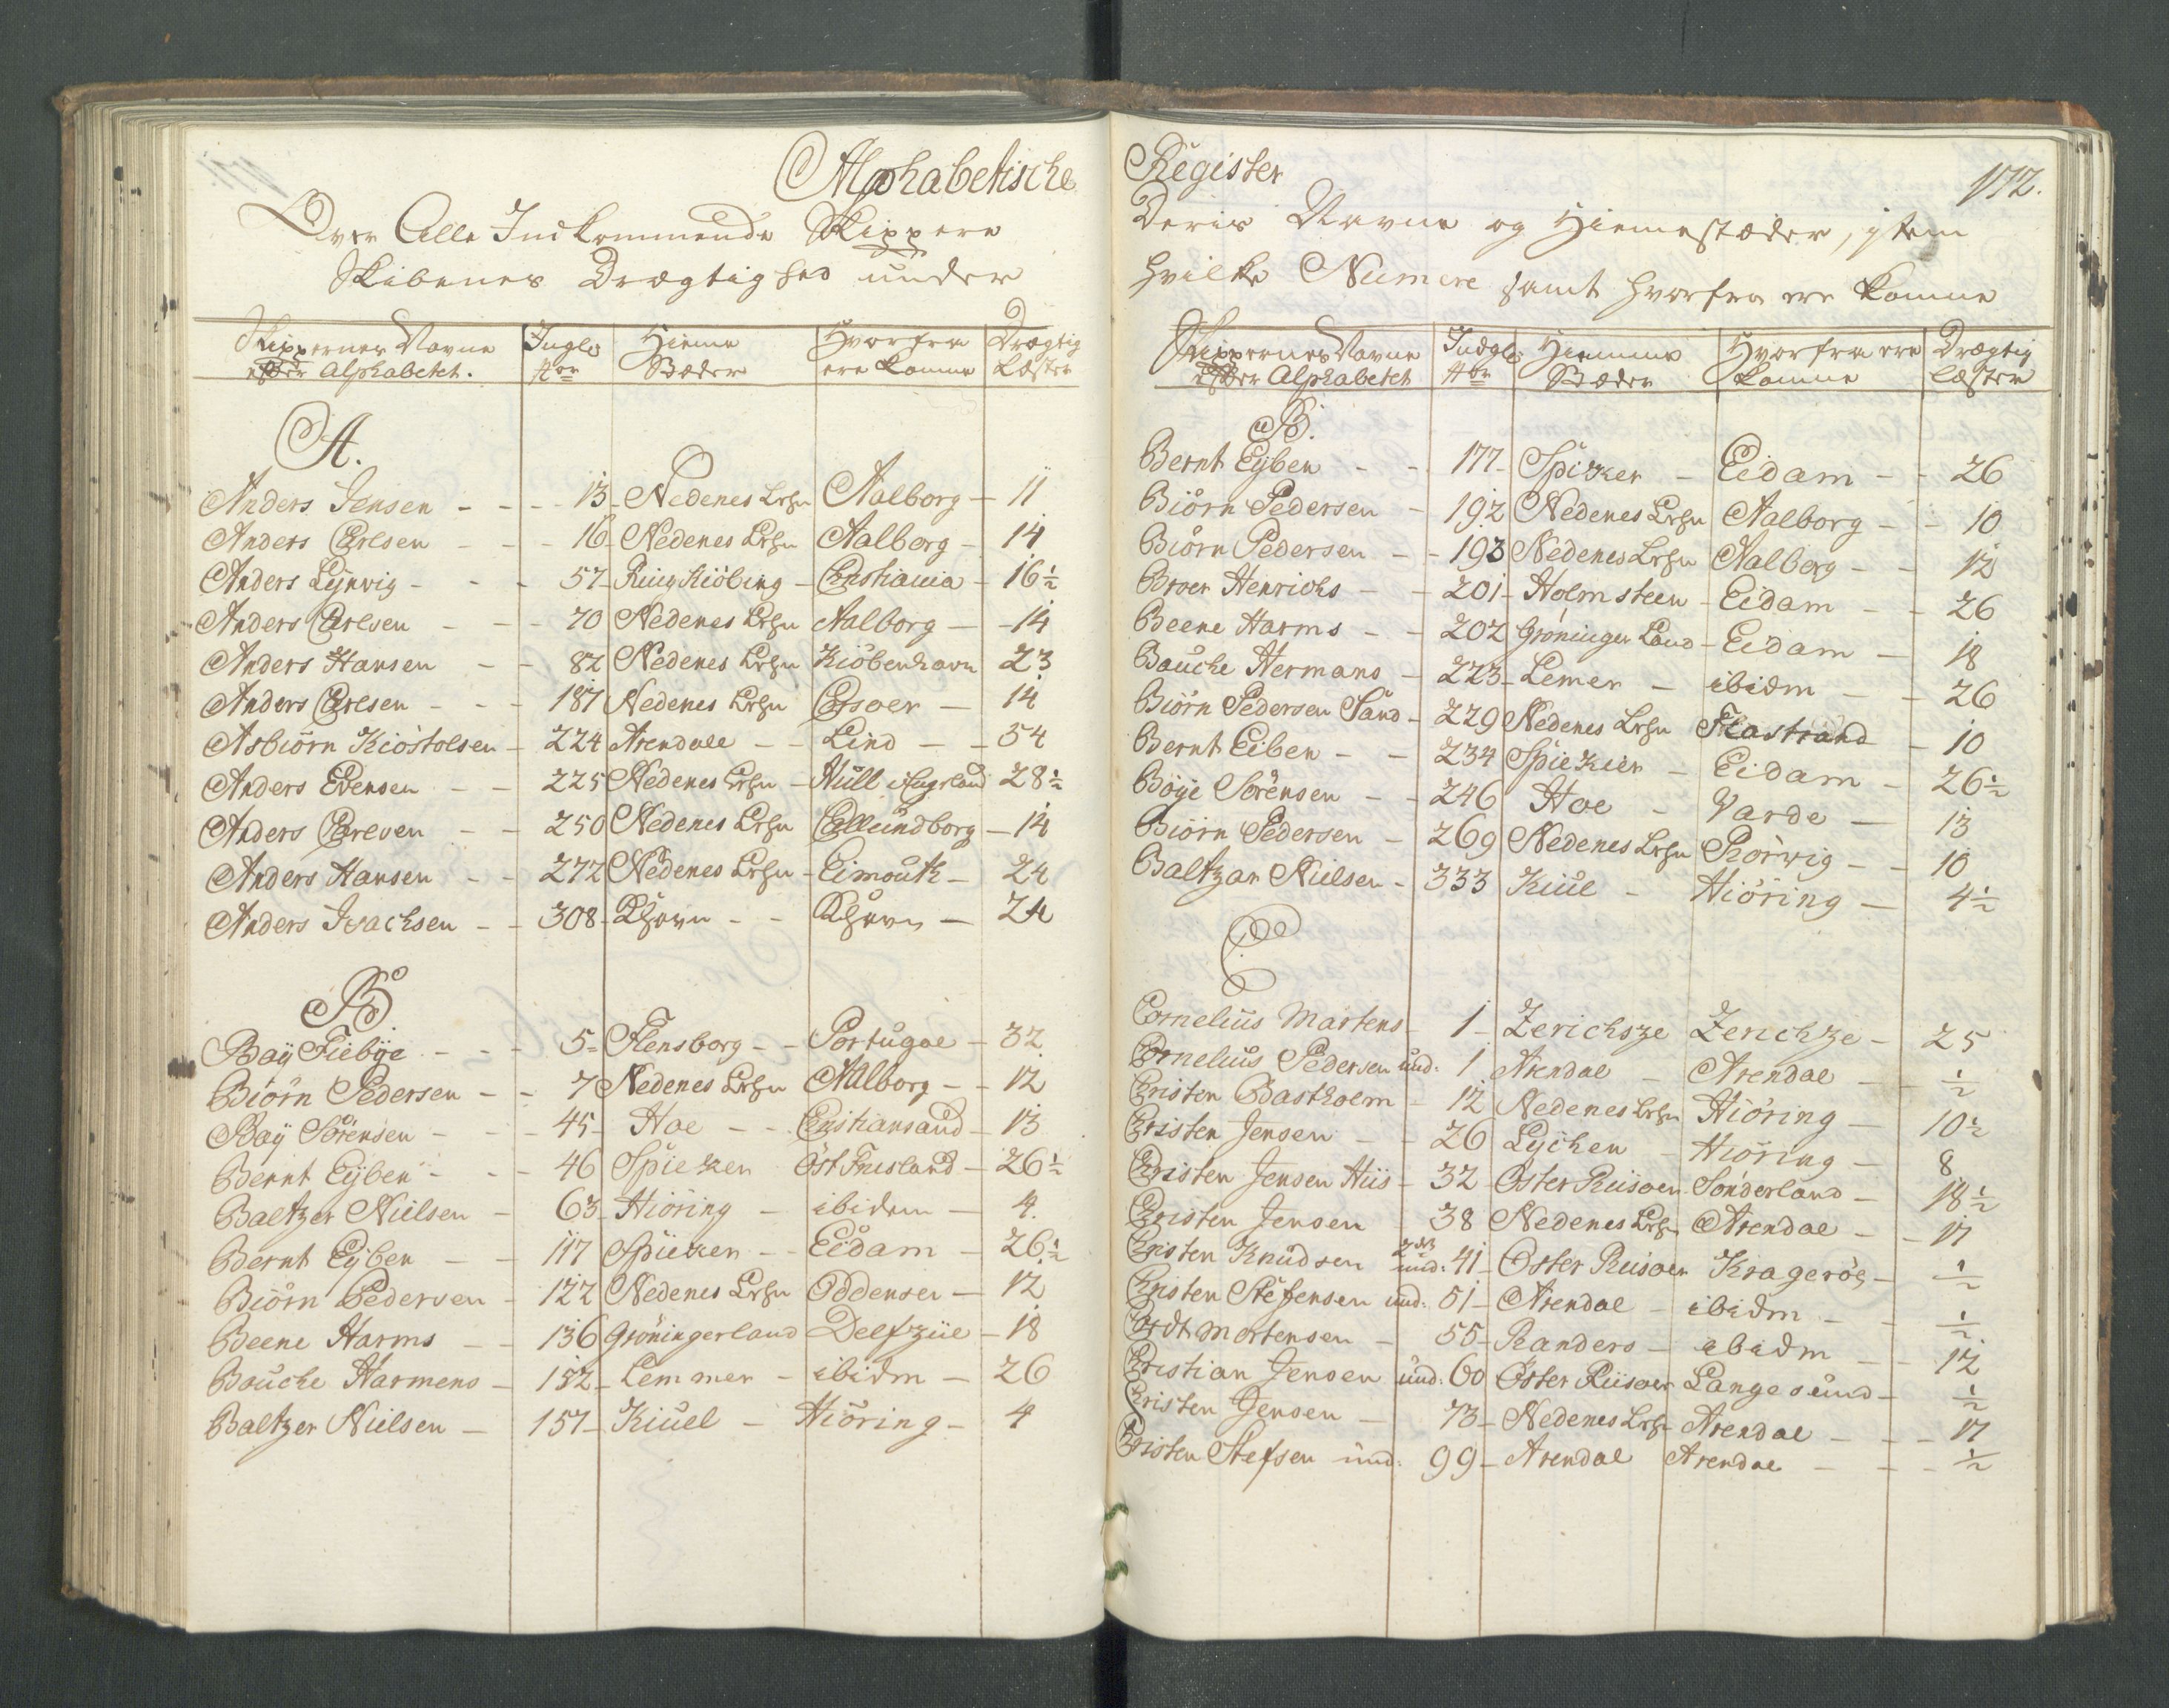 Alphabetische
Over Alle Indkommende Skippere
Skibenes Drægtighed under
Skippernes Navne Ingls Hiem Hvorfra Drægtig
efter Alphabetet. Nor Stæder ere komne Læster
A.
Anders Jensen - - - 13 - Nedenes Lehn Aalborg - 11
Anders Carlsen - - - 16 - Nedenes Lehn Aalborg - 14
Anders Lynvig - - - 57 - Ringkiöbing - Christiania - 16½
Anders Carlsen - - - 70 Nedenes Lehn Aalborg - 14
Anders Hansen - - 82 Nedenes Lehn Kiöbenhavn 23
Anders Carlsen - - - 187 Nedenes Lehn - 14
Asbiörn Kiöstolsen - 224 Arendall - - Lind - - 54
Anders Evensen - - 225 Nedenes Lehn - Hull i Engeland 28½
Anders Carlsen - - 250 Nedenes Lehn Callundborg - 14
Anders Hansen - - 272 Nedenes Lehn - Eimouth - 24
Anders Isachsen - - 308 - Khavn - - Khavn - 24
B
Baÿ Fiebÿe - - - 5 - Flensborg - - Portugal - 32
Biörn Pedersen - - 7 Nedenes Lehn Aalborg - - 12
Baÿ Sörensen - - - 45 - Hoe - - Cristiansand - 13
Bernt Eÿben - - - 46 Spieker Öst Frisland - 26½
Baltzer Nielsen - 63 - Hiöring - ibidem - 4
Bernt Eÿben - - 117 Spieker - - Eidam - 26½
Biörn Pedersen - 122 Nedenes Lehn Oddensee - 12
Beene Harms - - 136 Gröningerland Delfziel - 18
Bouche Harmens - 152 - Lemmer - ibidm - 26
Baltzer Nielsen - 157 - Kiuel - Hiöring - 4
Register 172.
Deris Navne og Hiemstæder, item
hvilke Numere samt hvorfra ere komne
Skippernes Navne Indgls Hiemme Hvorfra ere Drægtig
efter Alphabetet Nor Stæder komne Læster
B.
Bernt Eÿben - - 177 - Spieker - Eidam - - 26
Biörn Pedersen - 192 Nedenes Lehn Aalborg - - 10
Biörn Pedersen - - 193 Nedenes Lehn Aalborg - - 12
Broer Henrichs - - 201 - Holmsteen - Eidam - - 26
Beene Harms - - 202 Gröninger Land - Eidam - 18
Bauche Hermans - 223 - Lemer - ibidm - - 26
Biörn Pedersen Sand - 229 Nedenes Lehn Flastrand - 10
Bernt Eiben - - 234 Spiekier - Eidam - 26½
Böÿe Sörensen - - 246 Hoe - Varde - 13
Biörn Pedersen - 269 Nedenes Lehn Rörvig - - 10
Baltzar Nielsen - 333 Kiul - Hiöring - 4½
C
Cornelius Martens - 1 - Zerichsze Zerichze - 25
Cornelius Pedersen und: 1 Arendal - Arendal - ½
Cristen Bastholm - 12 Nedenes Lehn Hiöring - 10½
Cristen Jensen - - 26 Lÿchen - Hiöring - 8
Cristen Jensen Hiis - 32 - Öster Riisoer Sönderland - 18½
Cristen Jensen - 38 Nedenes Lehn Arendal - - 17
Cristen Knudsen und: 41 - Oster Riisoer Krageröe - ½
Cristen Stefensen und: 51 - Arendal - ibidm - - ½
Cordt Mortensen - 55 - Randers - ibidm - - 12
Cristian Jensen und: 60 Öster Riisoer Langesund - ½
Cristen Jensen - 73 - Nedenes Lehn Arendal - - - 17
Cristen Stefsen und: 99 - Arendal Arendal - - - ½